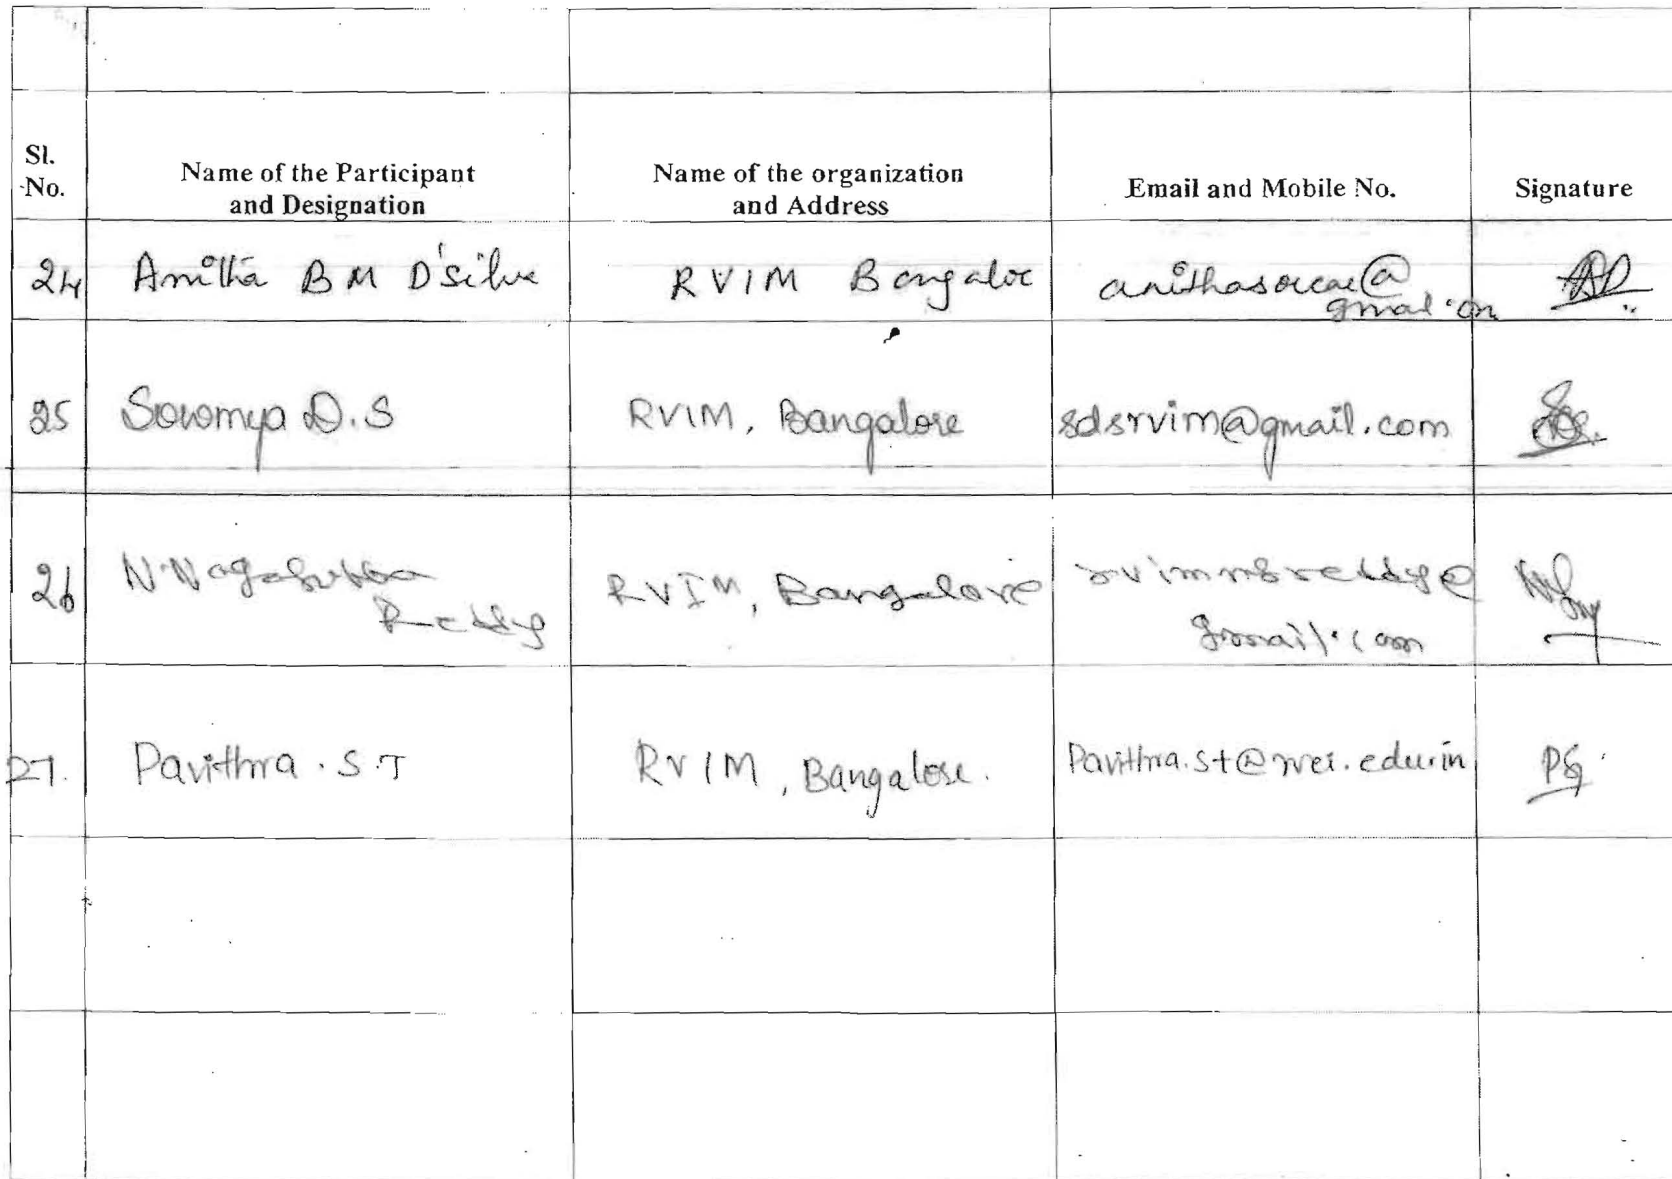 Sl.
No.
Name of the Participant
and Designation
Name of the organization
and Address
Email and Mobile No.
Signature
24 Anitha B M D'silva RVIM Bangalore
gmail.com
25 Sowmya D.S RVIM, Bangalore sdsrvim@gmail.com
26 N. Nagasubba RVIM, Bangalore rvimnsreddy@
Reddy gmail.com
27. Pavithra . S . T RVIM, Bangalore. Pavithra.st@rvei.edu.in